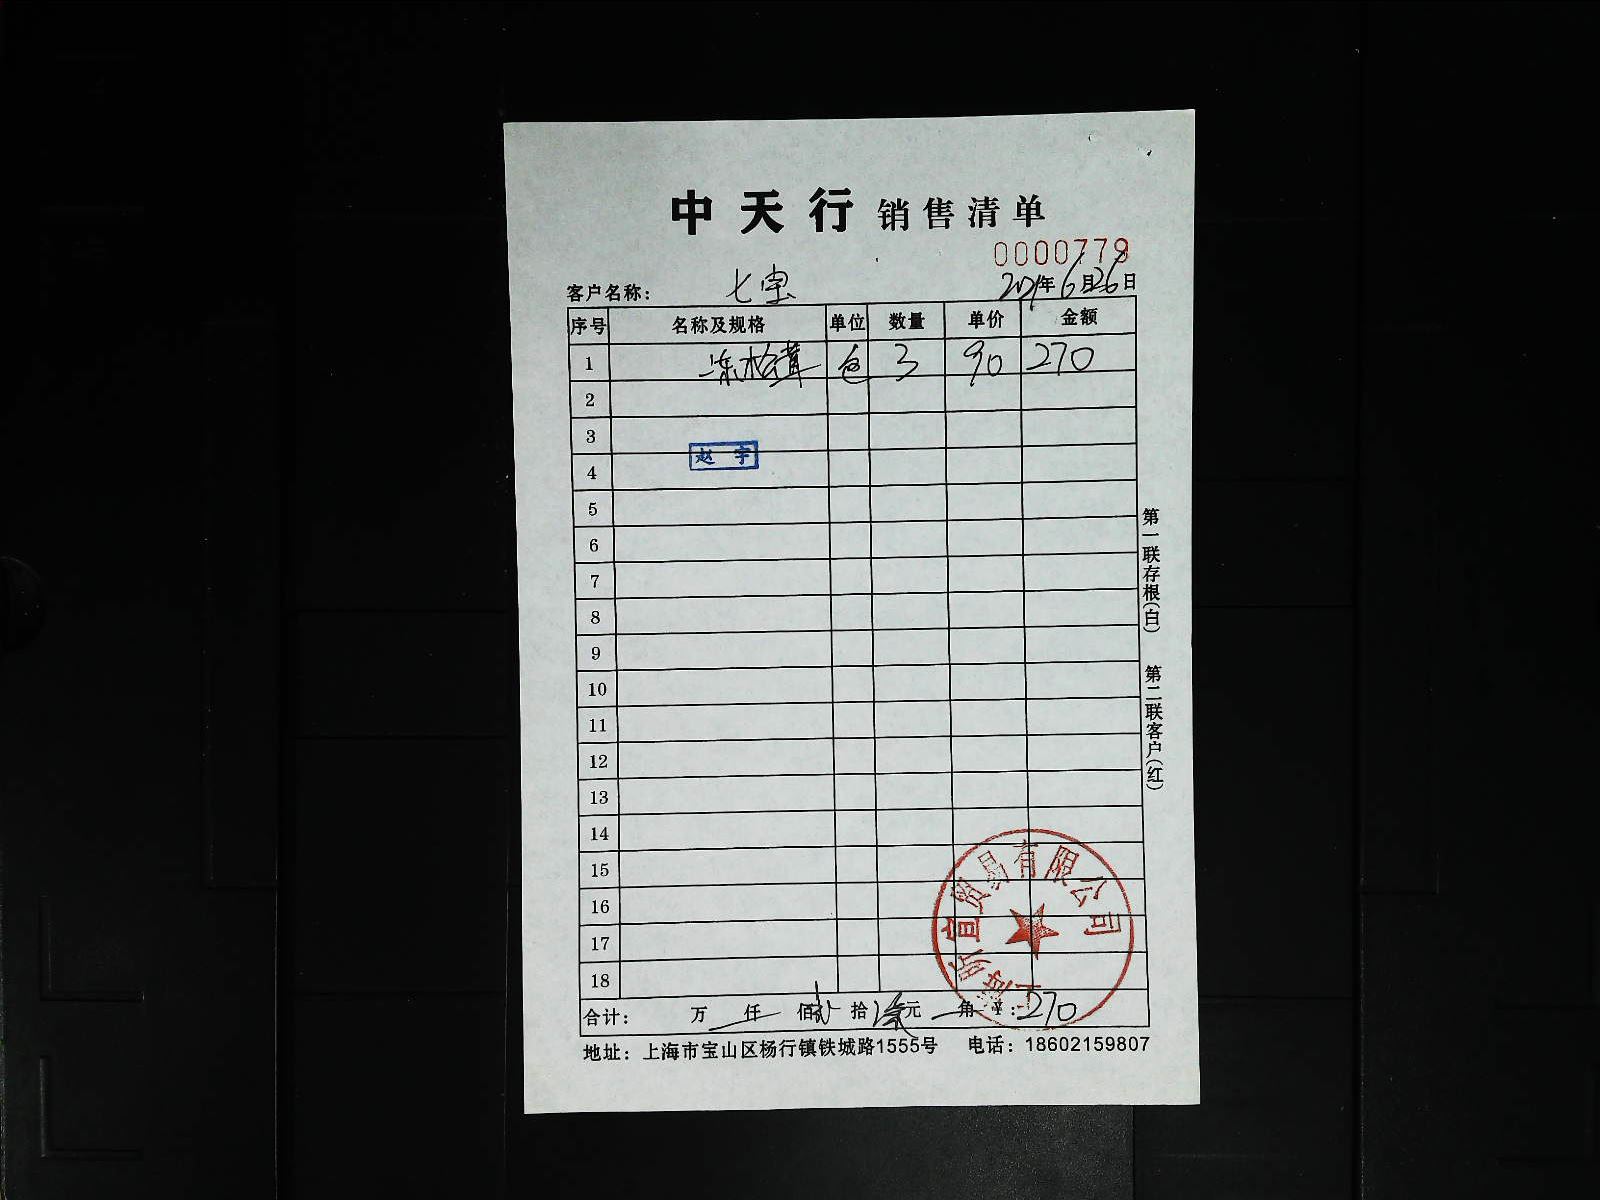 中天行 销售清单
0000779
客户名称： 七宝 2021年6月26日
序号 名称及规格 单位 数量 单价 金额
1 冻松茸 包 3 90 270
2
3
赵宇
4
5
6
7
8
9
10
11
12
13
14
15
16
17
18
合计： 万 仟 佰 拾 元 角 ¥：270
地址：上海市宝山区杨行镇铁城路1555号 电话：18602159807
第一联存根(白) 第二联客户(红)
上海昕宜贸易有限公司